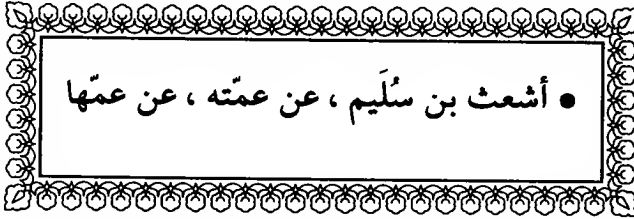 • أشعث بن سُلَيم ، عن عمّته ، عن عمّها